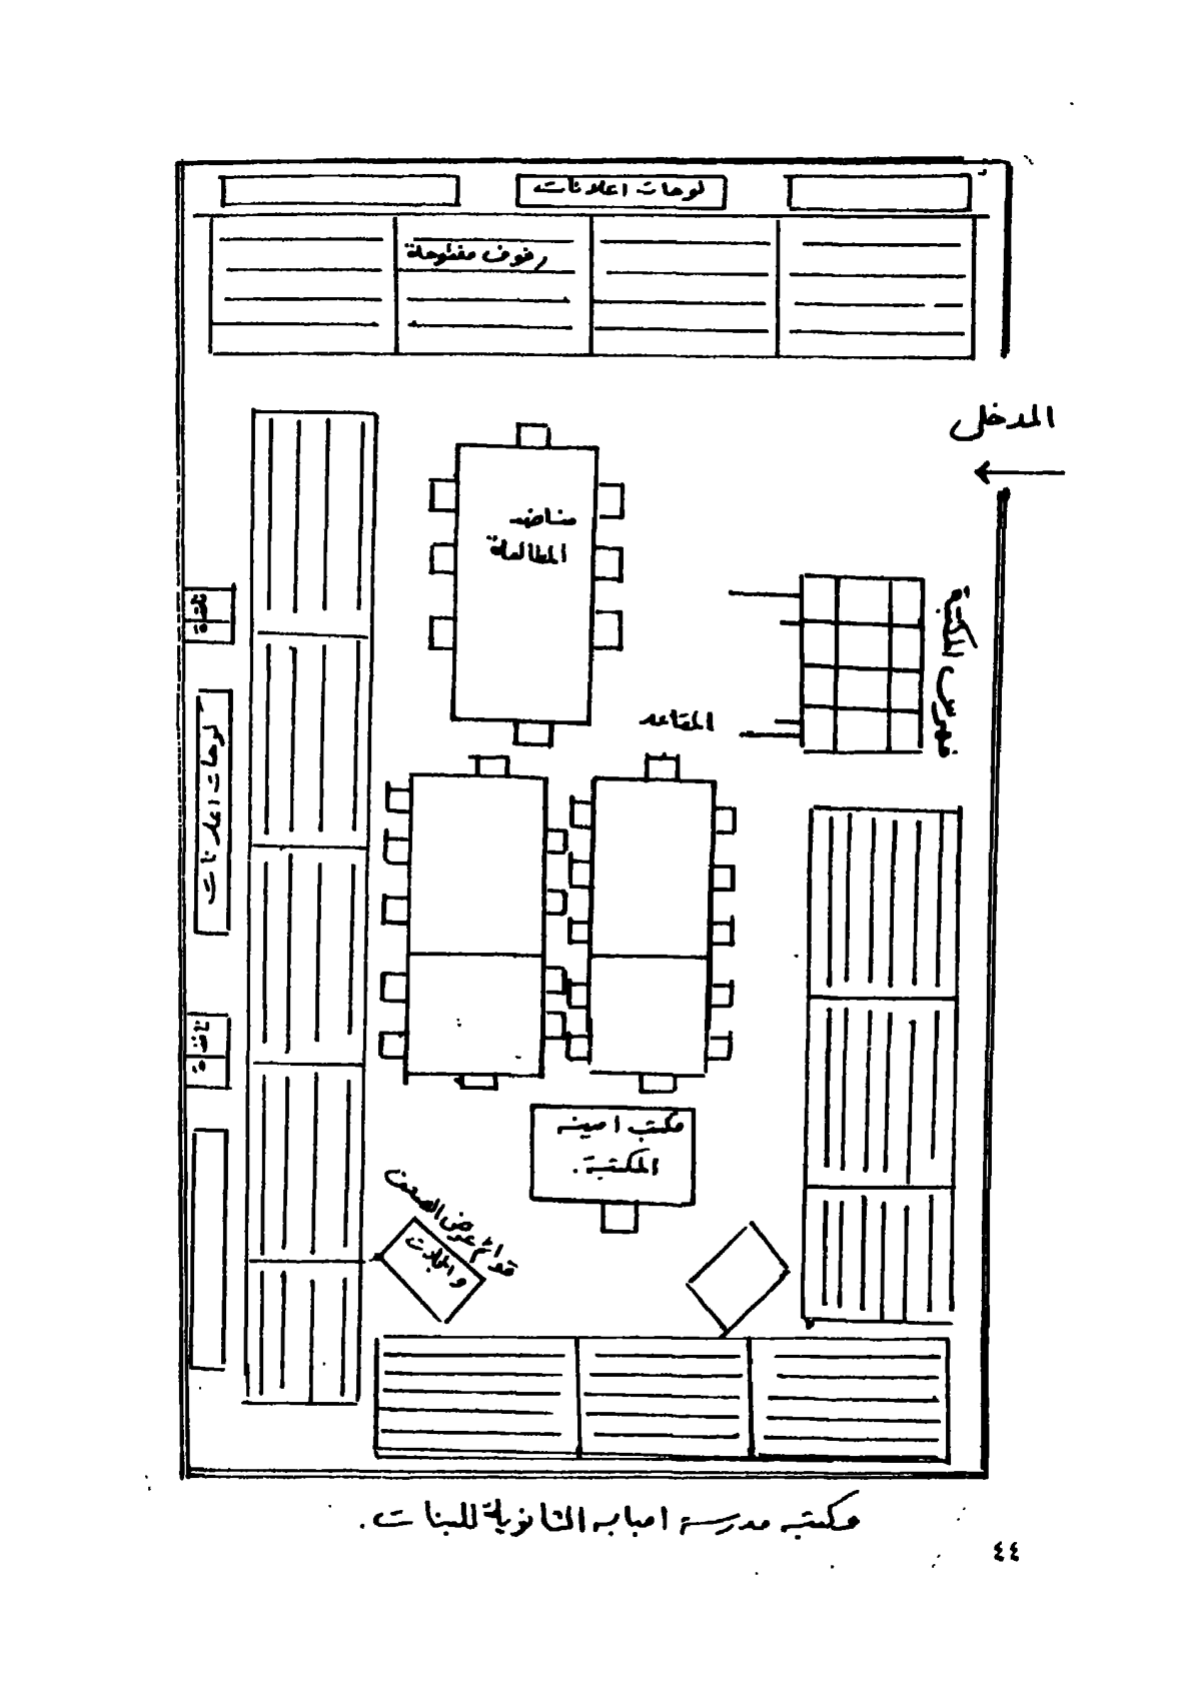 لوحات اعلانات
رفوف مفتوحة
المدخل
مناضد
المطالعة
نافذة
فهرس المكتبة
المقاعد
لوحات اعلانات
نافذة
مكتب امينه
المكتبة.
قوائم عرض الصحف
والمجلات
مكتبه مدرسة امبابه الثانوية للبنات.
٤٤